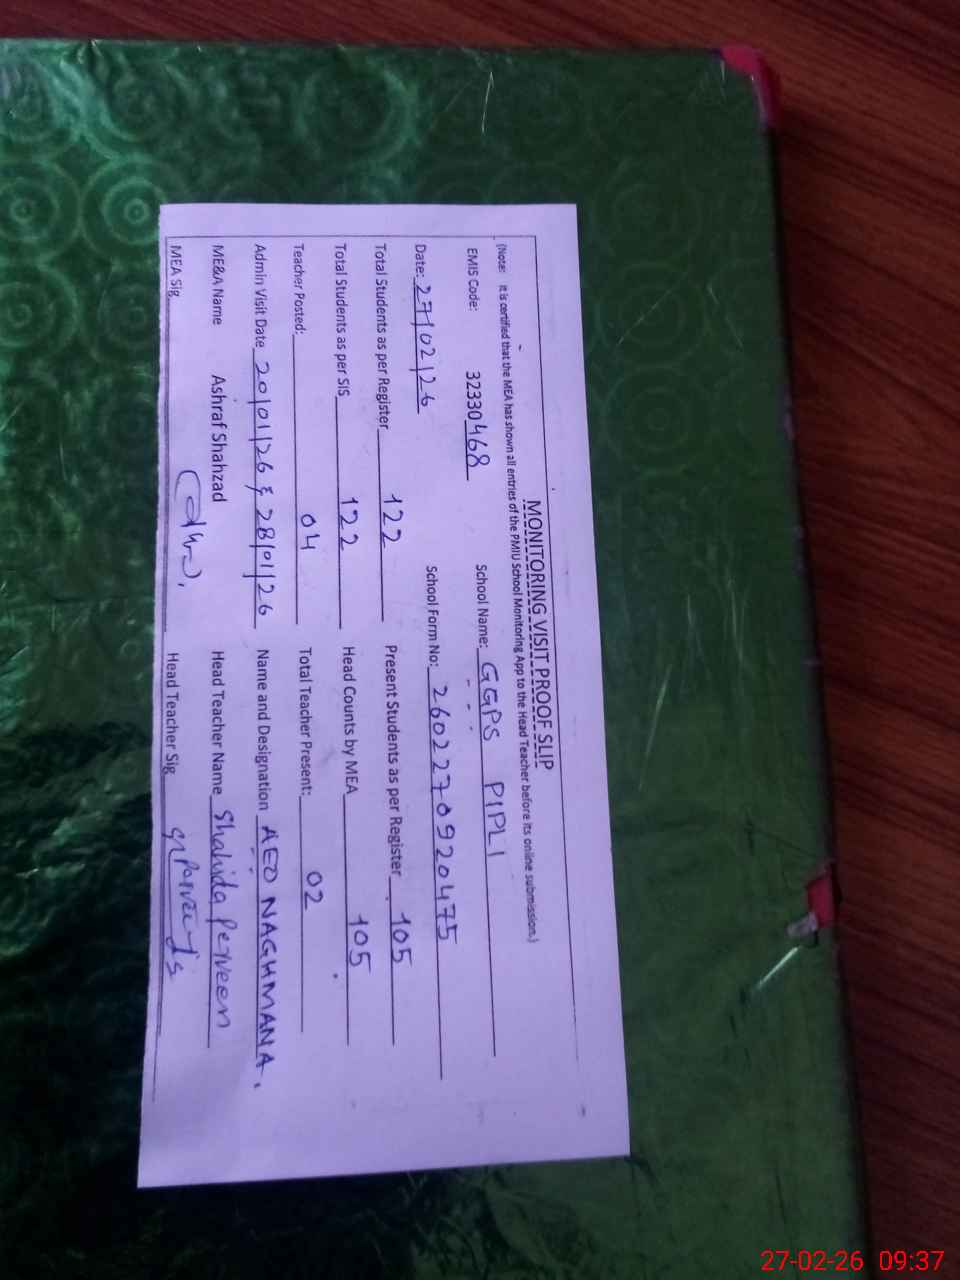 MONITORING VISIT PROOF SLIP
(Note: It is certified that the MEA has shown all entries of the PMIU School Monitoring App to the Head Teacher before its online submission.)
EMIS Code: 32330468 School Name: GGPS PIPLI
Date: 27/02/26 School Form No: 2602270920475
Total Students as per Register 122 Present Students as per Register 105
Total Students as per SIS 122 Head Counts by MEA 105
Teacher Posted: 04 Total Teacher Present: 02
Admin Visit Date 20/01/26 & 28/01/26 Name and Designation AEO NAGHMANA.
ME&A Name Ashraf Shahzad Head Teacher Name Shahida Perveen
MEA Sig Head Teacher Sig
27-02-26 09:37